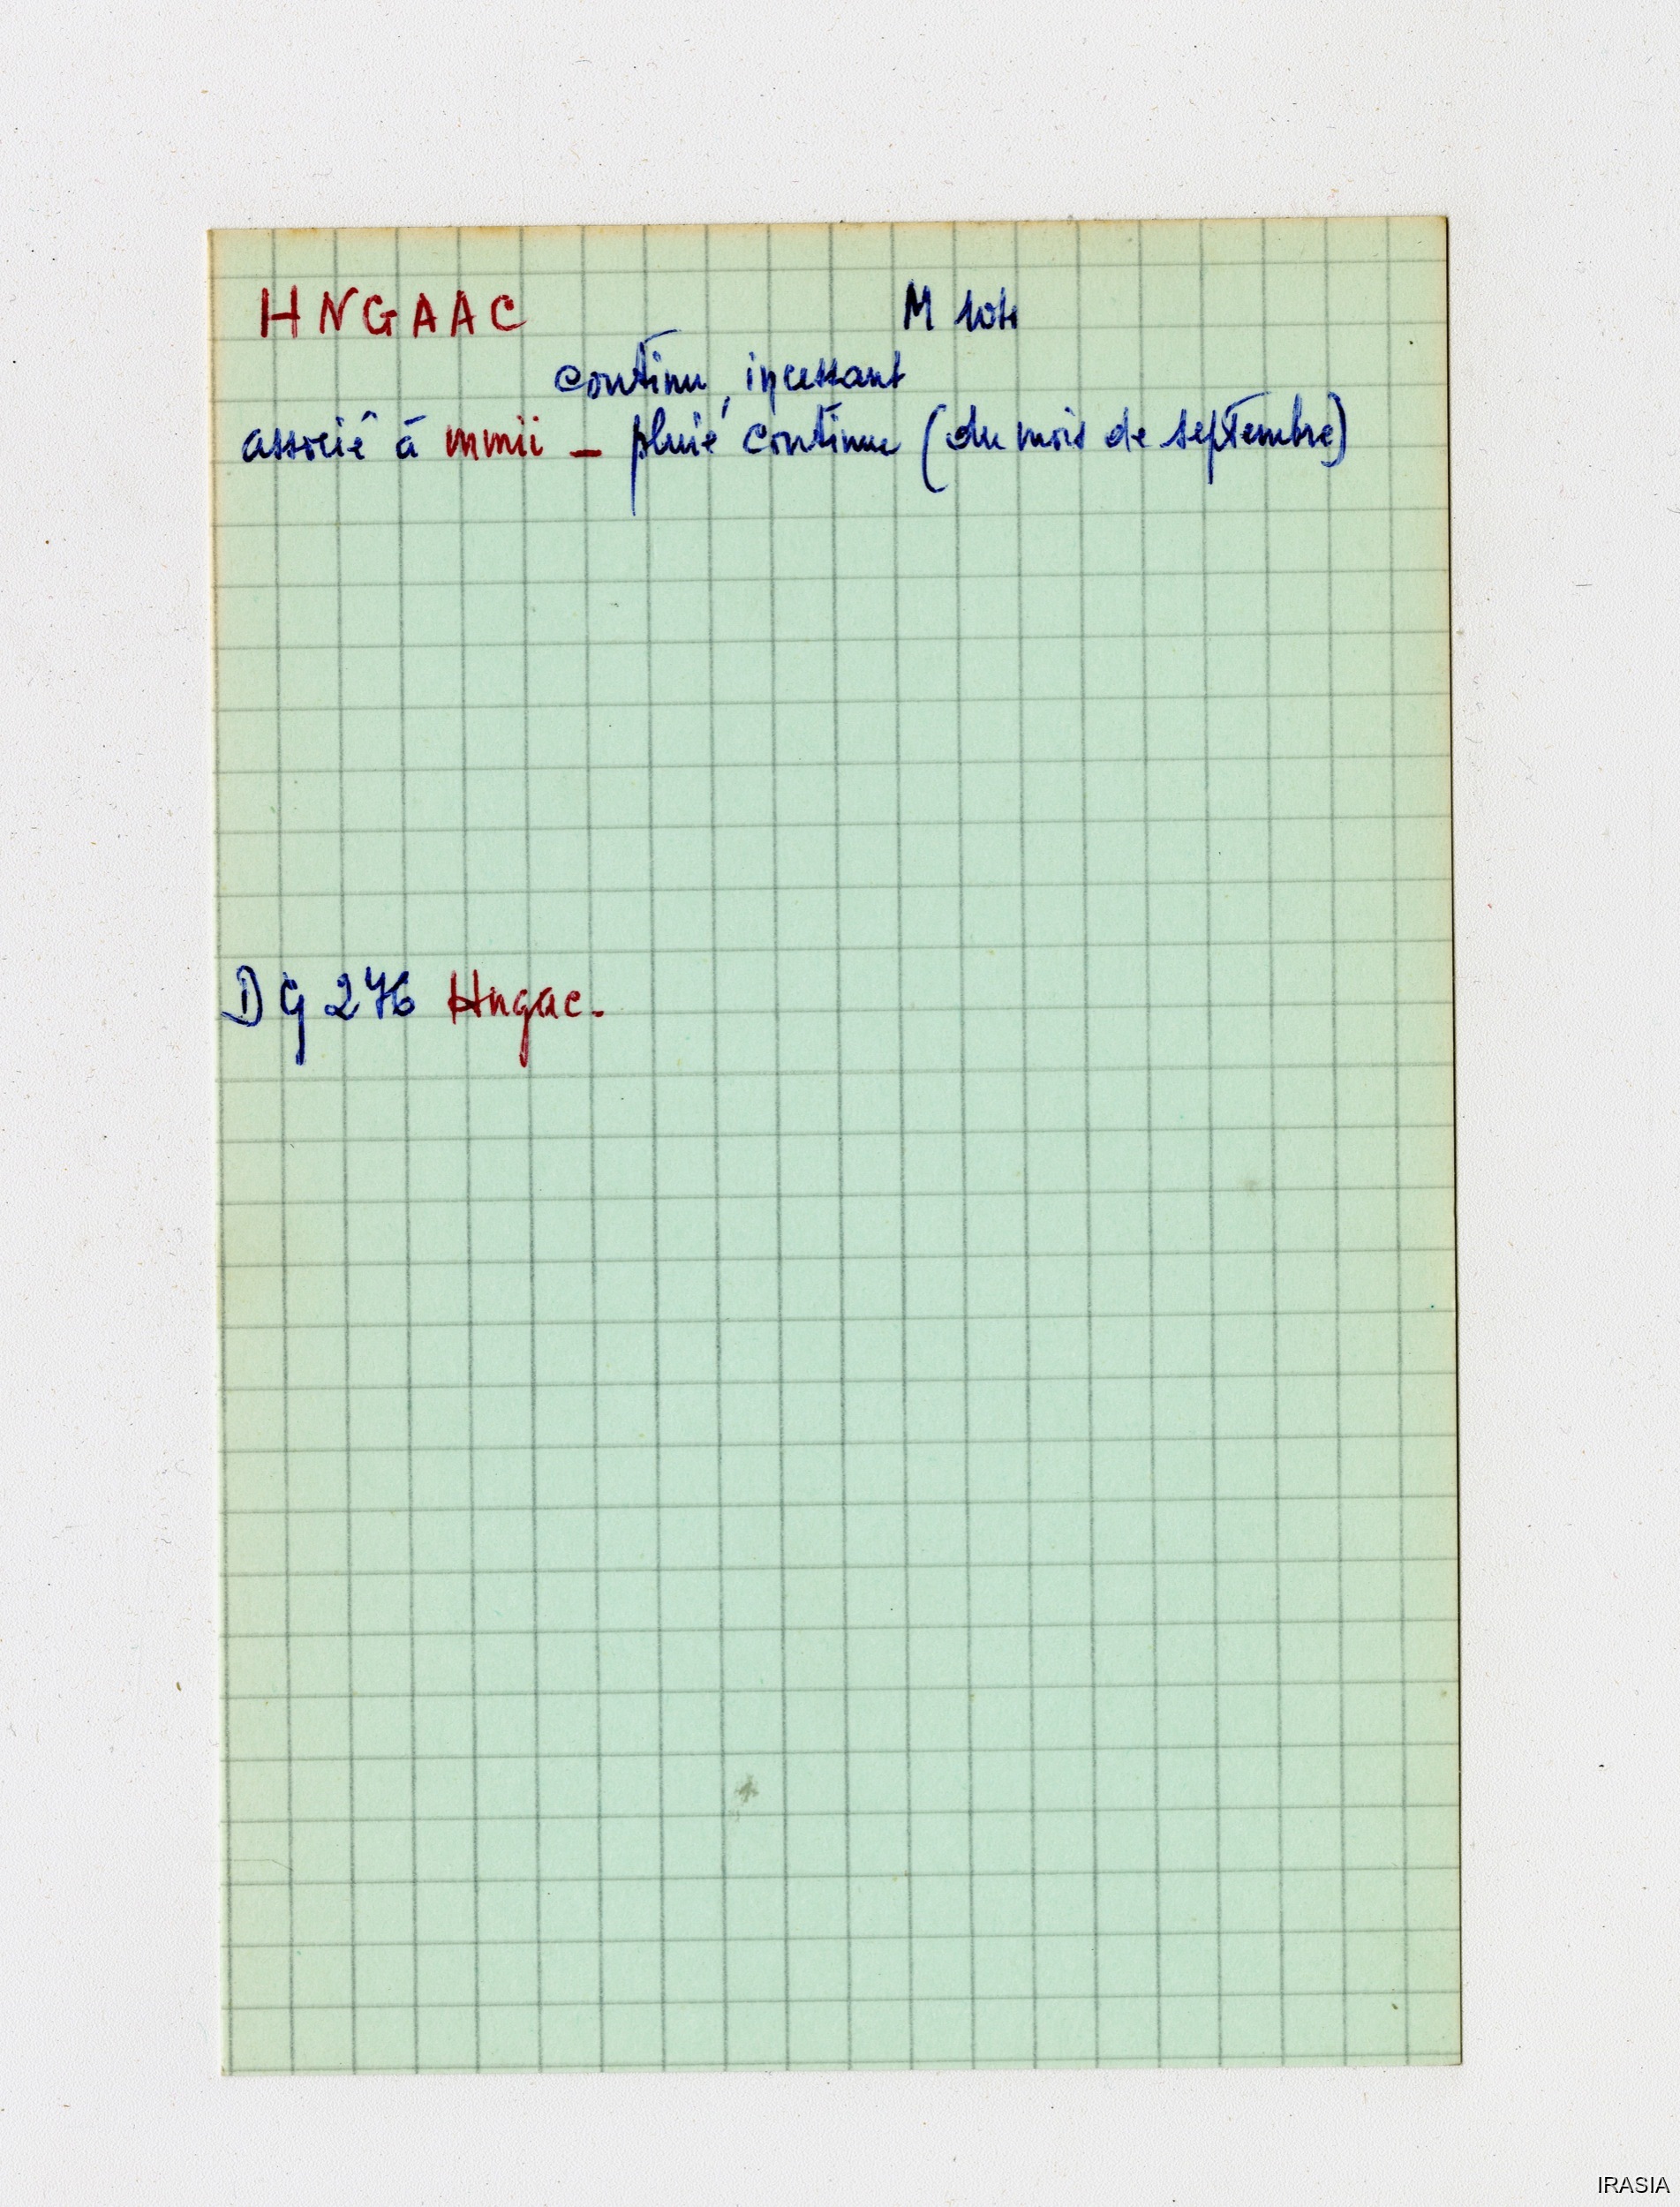 HNGAAC M
continu, incessant
associé à mmii _ pluie continue (du mois de septembre)
DG 276 Hngac.
IRASIA